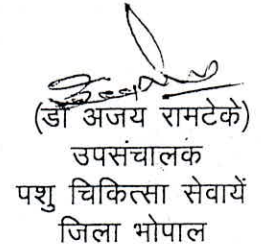 (डॉ अजय रामटेके)
उपसंचालक
पशु चिकित्सा सेवायें
जिला भोपाल